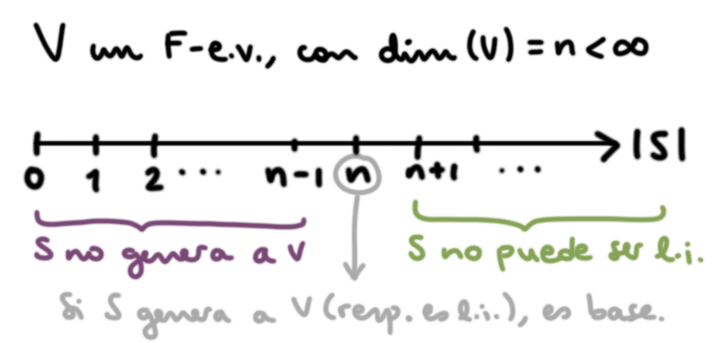 V un F-e.v., con dim(V) = n < ∞
0 1 2 ... n-1 n n+1 ... |S|
S no genera a V S no puede ser l.i.
Si S genera a V (resp. es l.i.), es base.